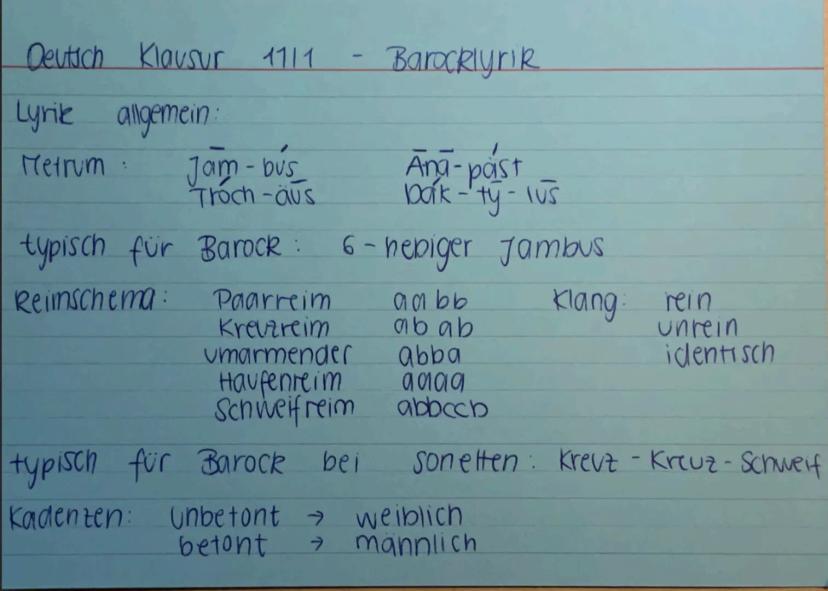 Deutsch Klausur 11/1 - Barocklyrik
Lyrik allgemein:
Metrum: Jām - bús Ānā - pást
Tróch - āus Dák - tȳ - lūs
typisch für Barock: 6-hebiger Jambus
Reimschema: Paarreim aabb Klang: rein
Kreuzreim abab unrein
umarmender abba identisch
Haufenreim aaaa
Schweifreim abbccb
typisch für Barock bei Sonetten: Kreuz - Kreuz - Schweif
Kadenzen: unbetont → weiblich
betont → männlich